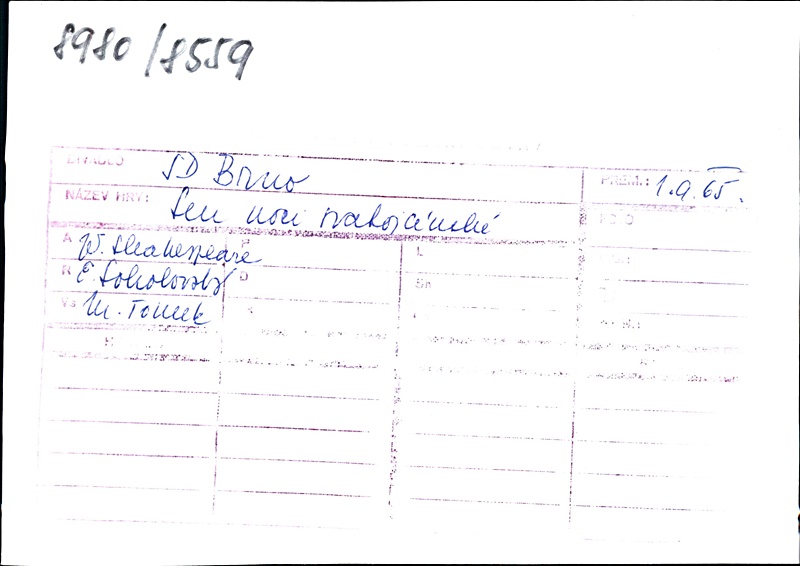 8980/8559
DIVADLO SD Brno PREM.: 1.9.65.
NÁZEV HRY: Sen noci svatojánské
A W. Shakespeare L
R E. Sokolovský D Sn
Vs M. Tomek